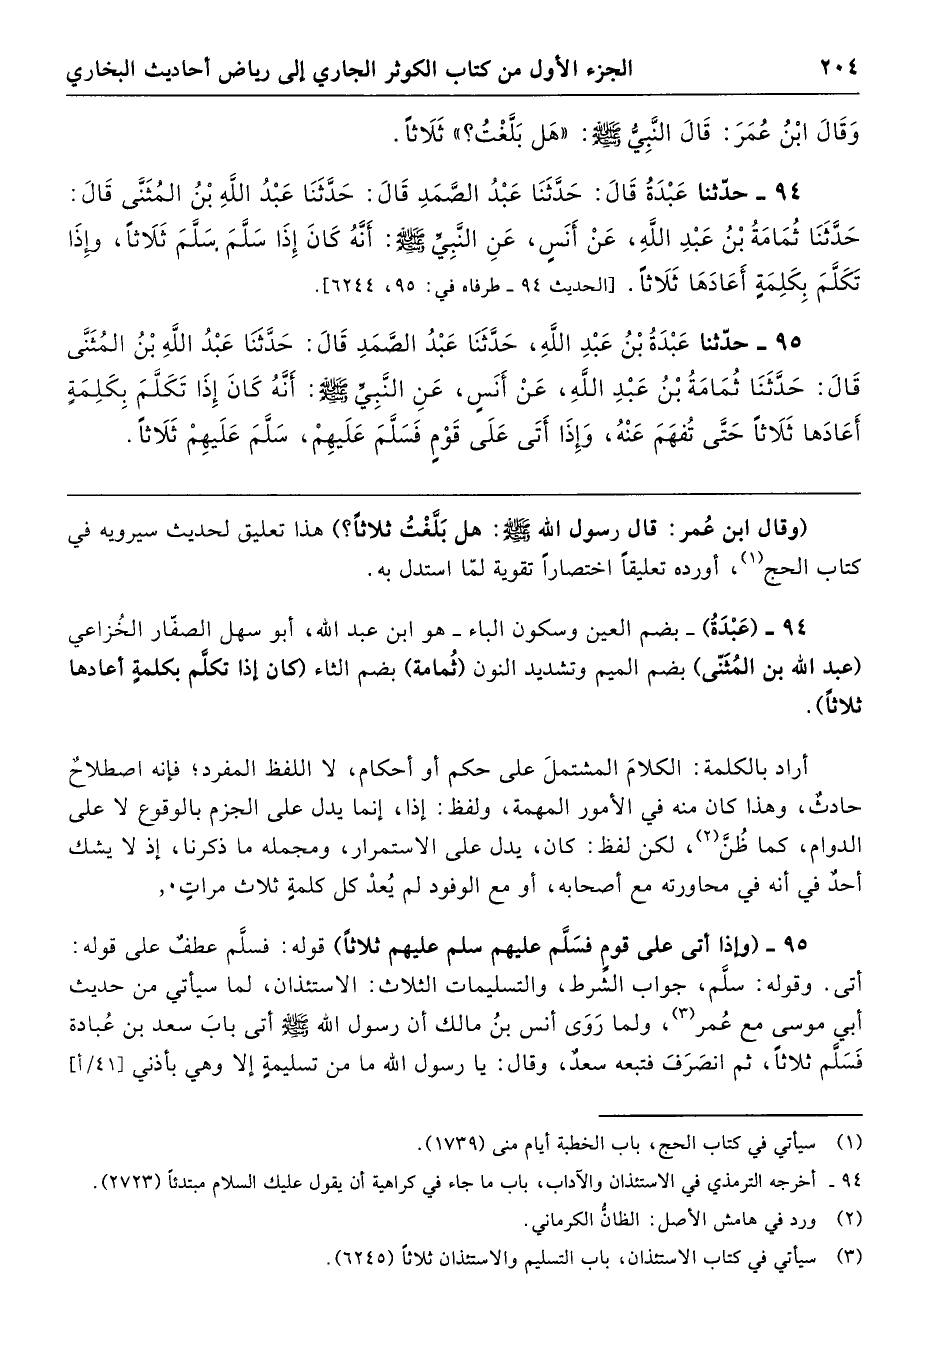 ٢٠٤ الجزء الأول من كتاب الكوثر الجاري إلى رياض أحاديث البخاري
وَقَالَ ابْنُ عُمَرَ: قَالَ النَّبِيُّ ﷺ: «هَل بَلَّغْتُ؟» ثَلَاثاً.
٩٤ ـ حدّثنا عَبْدَةُ قَالَ: حَدَّثَنَا عَبْدُ الصَّمَدِ قَالَ: حَدَّثَنَا عَبْدُ اللَّهِ بْنُ المُثَنَّى قَالَ:
حَدَّثَنَا ثُمَامَةُ بْنُ عَبْدِ اللَّهِ، عَنْ أَنَسٍ، عَنِ النَّبِيِّ ﷺ: أَنَّهُ كَانَ إِذَا سَلَّمَ سَلَّمَ ثَلَاثاً، وإِذَا
تَكَلَّمَ بِكَلِمَةٍ أَعَادَهَا ثَلَاثاً. [الحديث ٩٤ ـ طرفاه في: ٩٥، ٦٢٤٤].
٩٥ ـ حدّثنا عَبْدَةُ بْنُ عَبْدِ اللَّهِ، حَدَّثَنَا عَبْدُ الصَّمَدِ قَالَ: حَدَّثَنَا عَبْدُ اللَّهِ بْنُ المُثَنَّى
قَالَ: حَدَّثَنَا ثُمَامَةُ بْنُ عَبْدِ اللَّهِ، عَنْ أَنَسٍ، عَنِ النَّبِيِّ ﷺ: أَنَّهُ كَانَ إِذَا تَكَلَّمَ بِكَلِمَةٍ
أَعَادَها ثَلَاثاً حَتَّى تُفهَمَ عَنْهُ، وَإِذَا أَتَى عَلَى قَوْمٍ فَسَلَّمَ عَلَيهِمْ، سَلَّمَ عَلَيهِمْ ثَلَاثاً.
(وقال ابن عُمر: قال رسول الله ﷺ: هل بَلَّغْتُ ثلاثاً؟) هذا تعليق لحديث سيرويه في
كتاب الحج(١)، أورده تعليقاً اختصاراً تقوية لمّا استدل به.
٩٤ ـ (عَبْدَةُ) ـ بضم العين وسكون الباء ـ هو ابن عبد الله، أبو سهل الصفّار الخُزاعي
(عبد الله بن المُثَنّى) بضم الميم وتشديد النون (ثُمامة) بضم الثاء (كان إذا تكلَّم بكلمةٍ أعادها
ثلاثاً).
أراد بالكلمة: الكلامَ المشتملَ على حكم أو أحكام، لا اللفظ المفرد؛ فإنه اصطلاحٌ
حادثٌ، وهذا كان منه في الأمور المهمة، ولفظ: إذا، إنما يدل على الجزم بالوقوع لا على
الدوام، كما ظُنَّ(٢)، لكن لفظ: كان، يدل على الاستمرار، ومجمله ما ذكرنا، إذ لا يشك
أحدٌ في أنه في محاورته مع أصحابه، أو مع الوفود لم يُعدْ كل كلمةٍ ثلاث مراتٍ.
٩٥ ـ (وإذا أتى على قومٍ فسَلَّم عليهم سلم عليهم ثلاثاً) قوله: فسلَّم عطفٌ على قوله:
أتى. وقوله: سلَّم، جواب الشَّرط، والتسليمات الثلاث: الاستئذان، لما سيأتي من حديث
أبي موسى مع عُمر(٣)، ولما رَوَى أنس بنُ مالك أن رسول الله ﷺ أتى بابَ سعد بن عُبادة
فَسَلَّم ثلاثاً، ثم انصَرَفَ فتبعه سعدٌ، وقال: يا رسول الله ما من تسليمةٍ إلا وهي بأذني [٤١/أ]
(١) سيأتي في كتاب الحج، باب الخطبة أيام منى (١٧٣٩).
٩٤ ـ أخرجه الترمذي في الاستئذان والآداب، باب ما جاء في كراهية أن يقول عليك السلام مبتدئاً (٢٧٢٣).
(٢) ورد في هامش الأصل: الظانُّ الكرماني.
(٣) سيأتي في كتاب الاستئذان، باب التسليم والاستئذان ثلاثاً (٦٢٤٥).